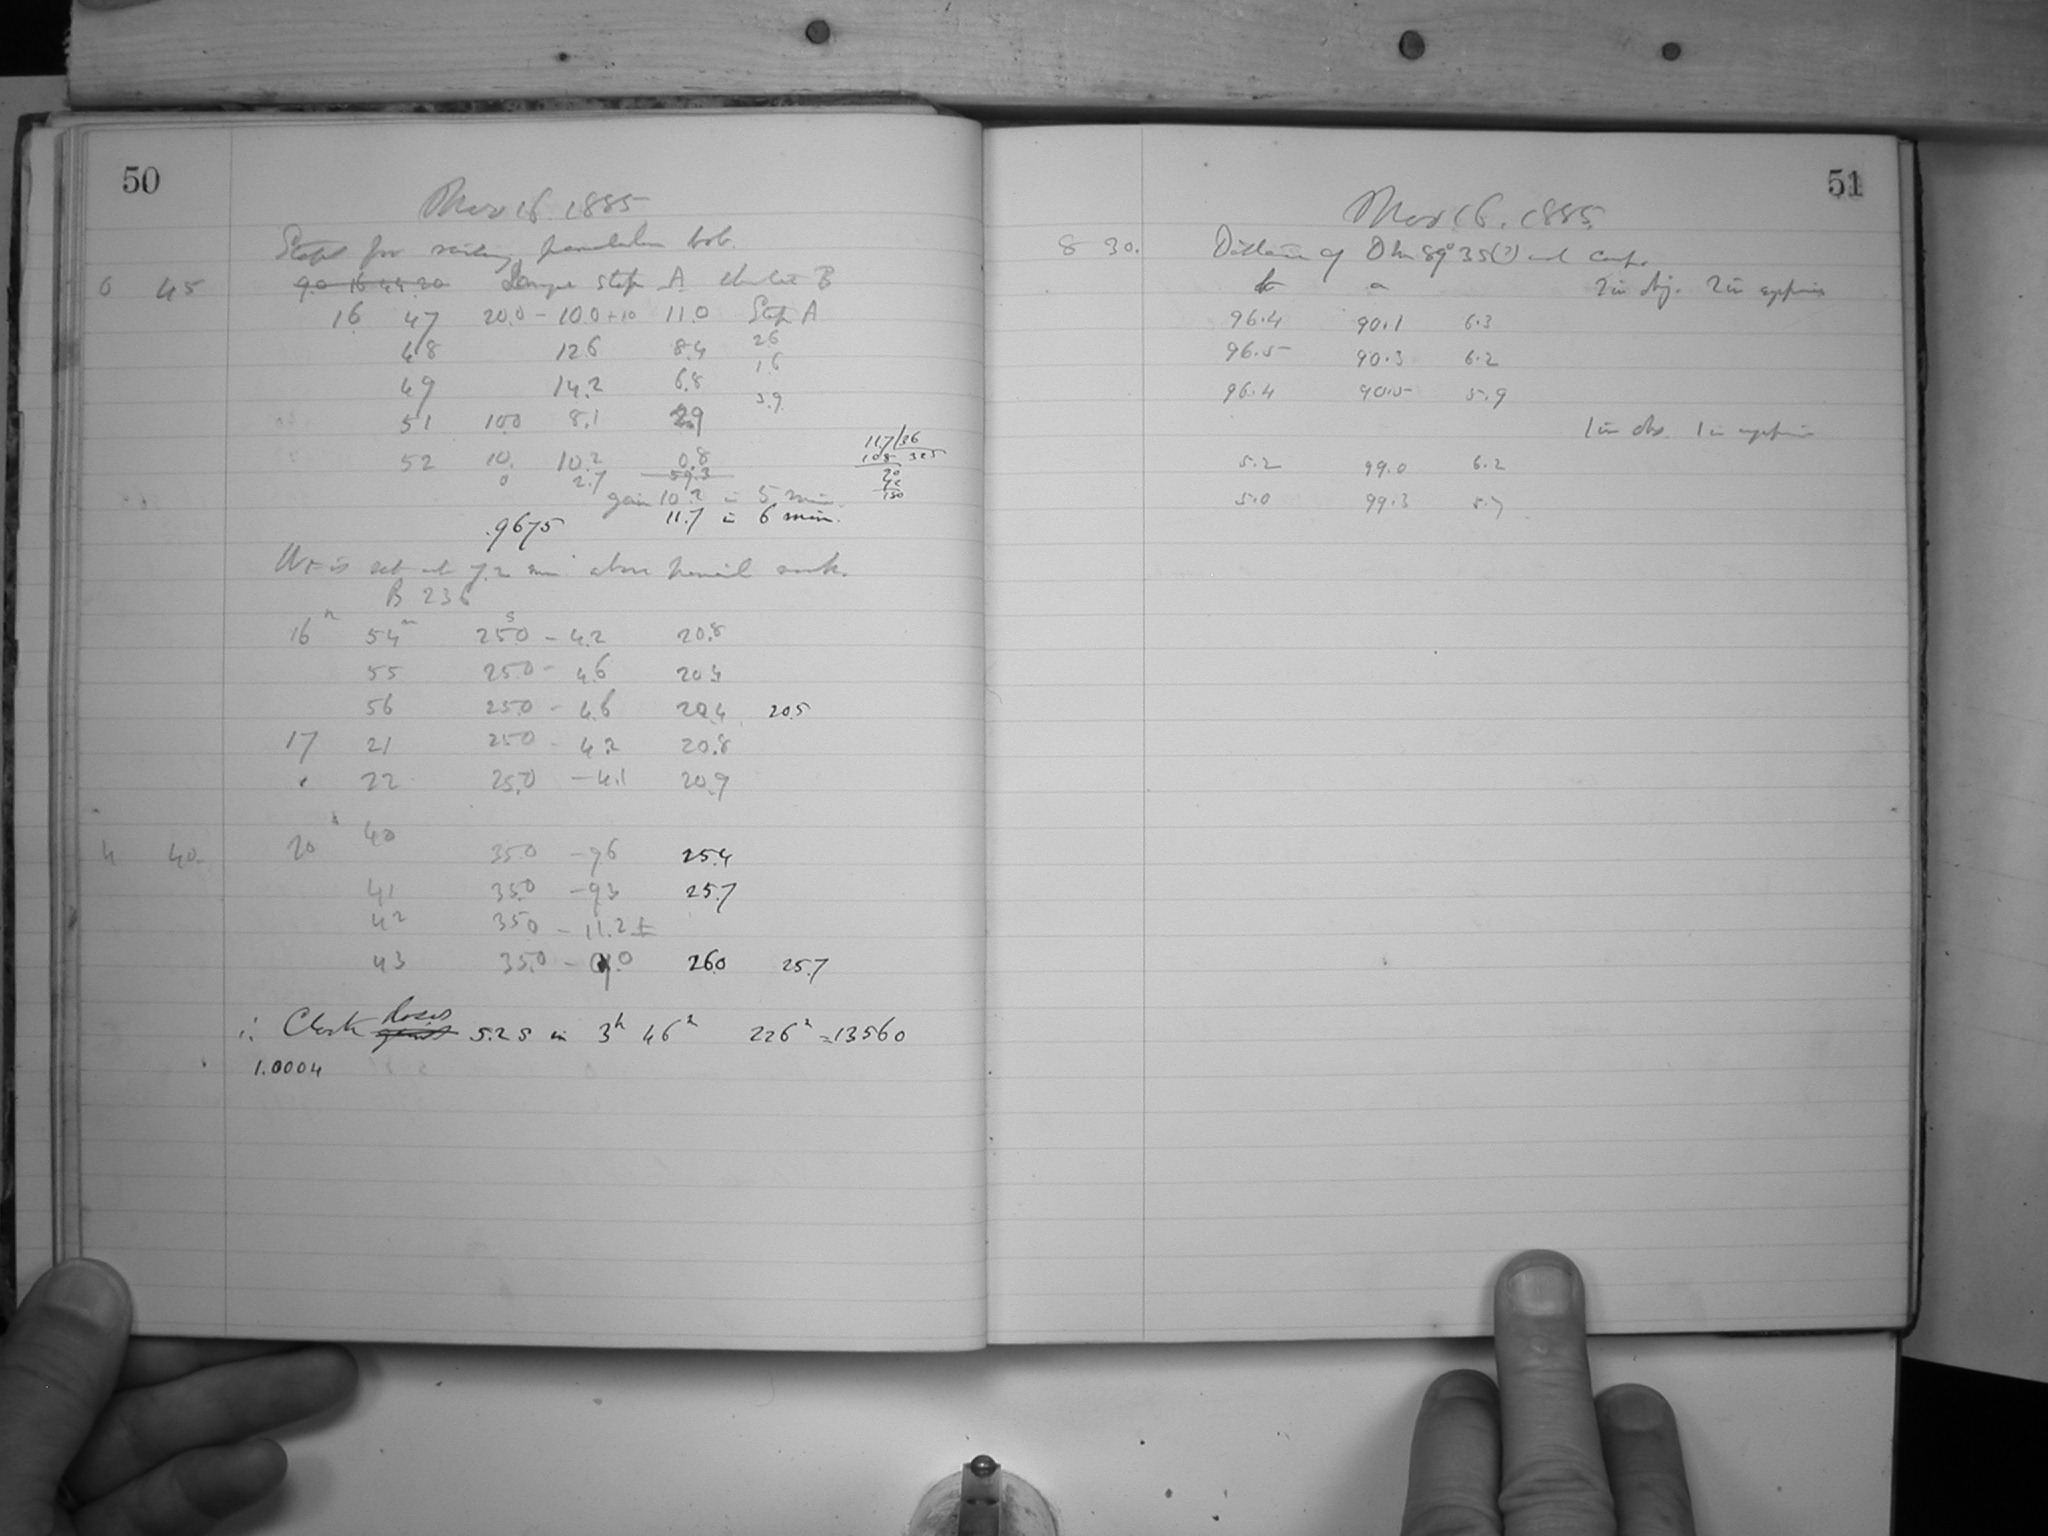 50
Mar 16 1885
Stopt for raising pendulum bob.
0 45 9.0 16 44 20 Lamp stop A B
16 47 20.0 - 10.0 + 10 11.0 Stop A
48 12.6 8.4 2.6
49 14.2 6.8 1.6
3.9
51 10.0 8.1 2.9
52 10. 10.2 0.8
0 2.7 59.3
11.7/36
108 325
gain 10.2 in 5 min.
.9675 11.7 in 6 min.
Wt is set at 7.2 mm above pencil mark.
B 236
16 h 54 m 25.0 s - 4.2 20.8
55 25.0 - 4.6 20.4
56 25.0 - 4.6 20.4 20.5
17 21 25.0 - 4.2 20.8
22 25.0 - 4.1 20.9
4 40. 20 40 35.0 - 9.6 25.4
41 35.0 - 9.3 25.7
42 35.0 - 11.2 ±
43 35.0 - 9.0 26.0 25.7
∴ Clock loses 5.2 s in 3h 46m 226m = 13560
1.0004
51
Mar. 16. 1885.
8 30. Distance of DM 89° 35(?) and comp.
b a 2 in obj. 2 in eyepiece
96.4 90.1 6.3
96.5 90.3 6.2
96.4 90.5 5.9
1 in obj. 1 in eyepiece
5.2 99.0 6.2
5.0 99.3 5.7